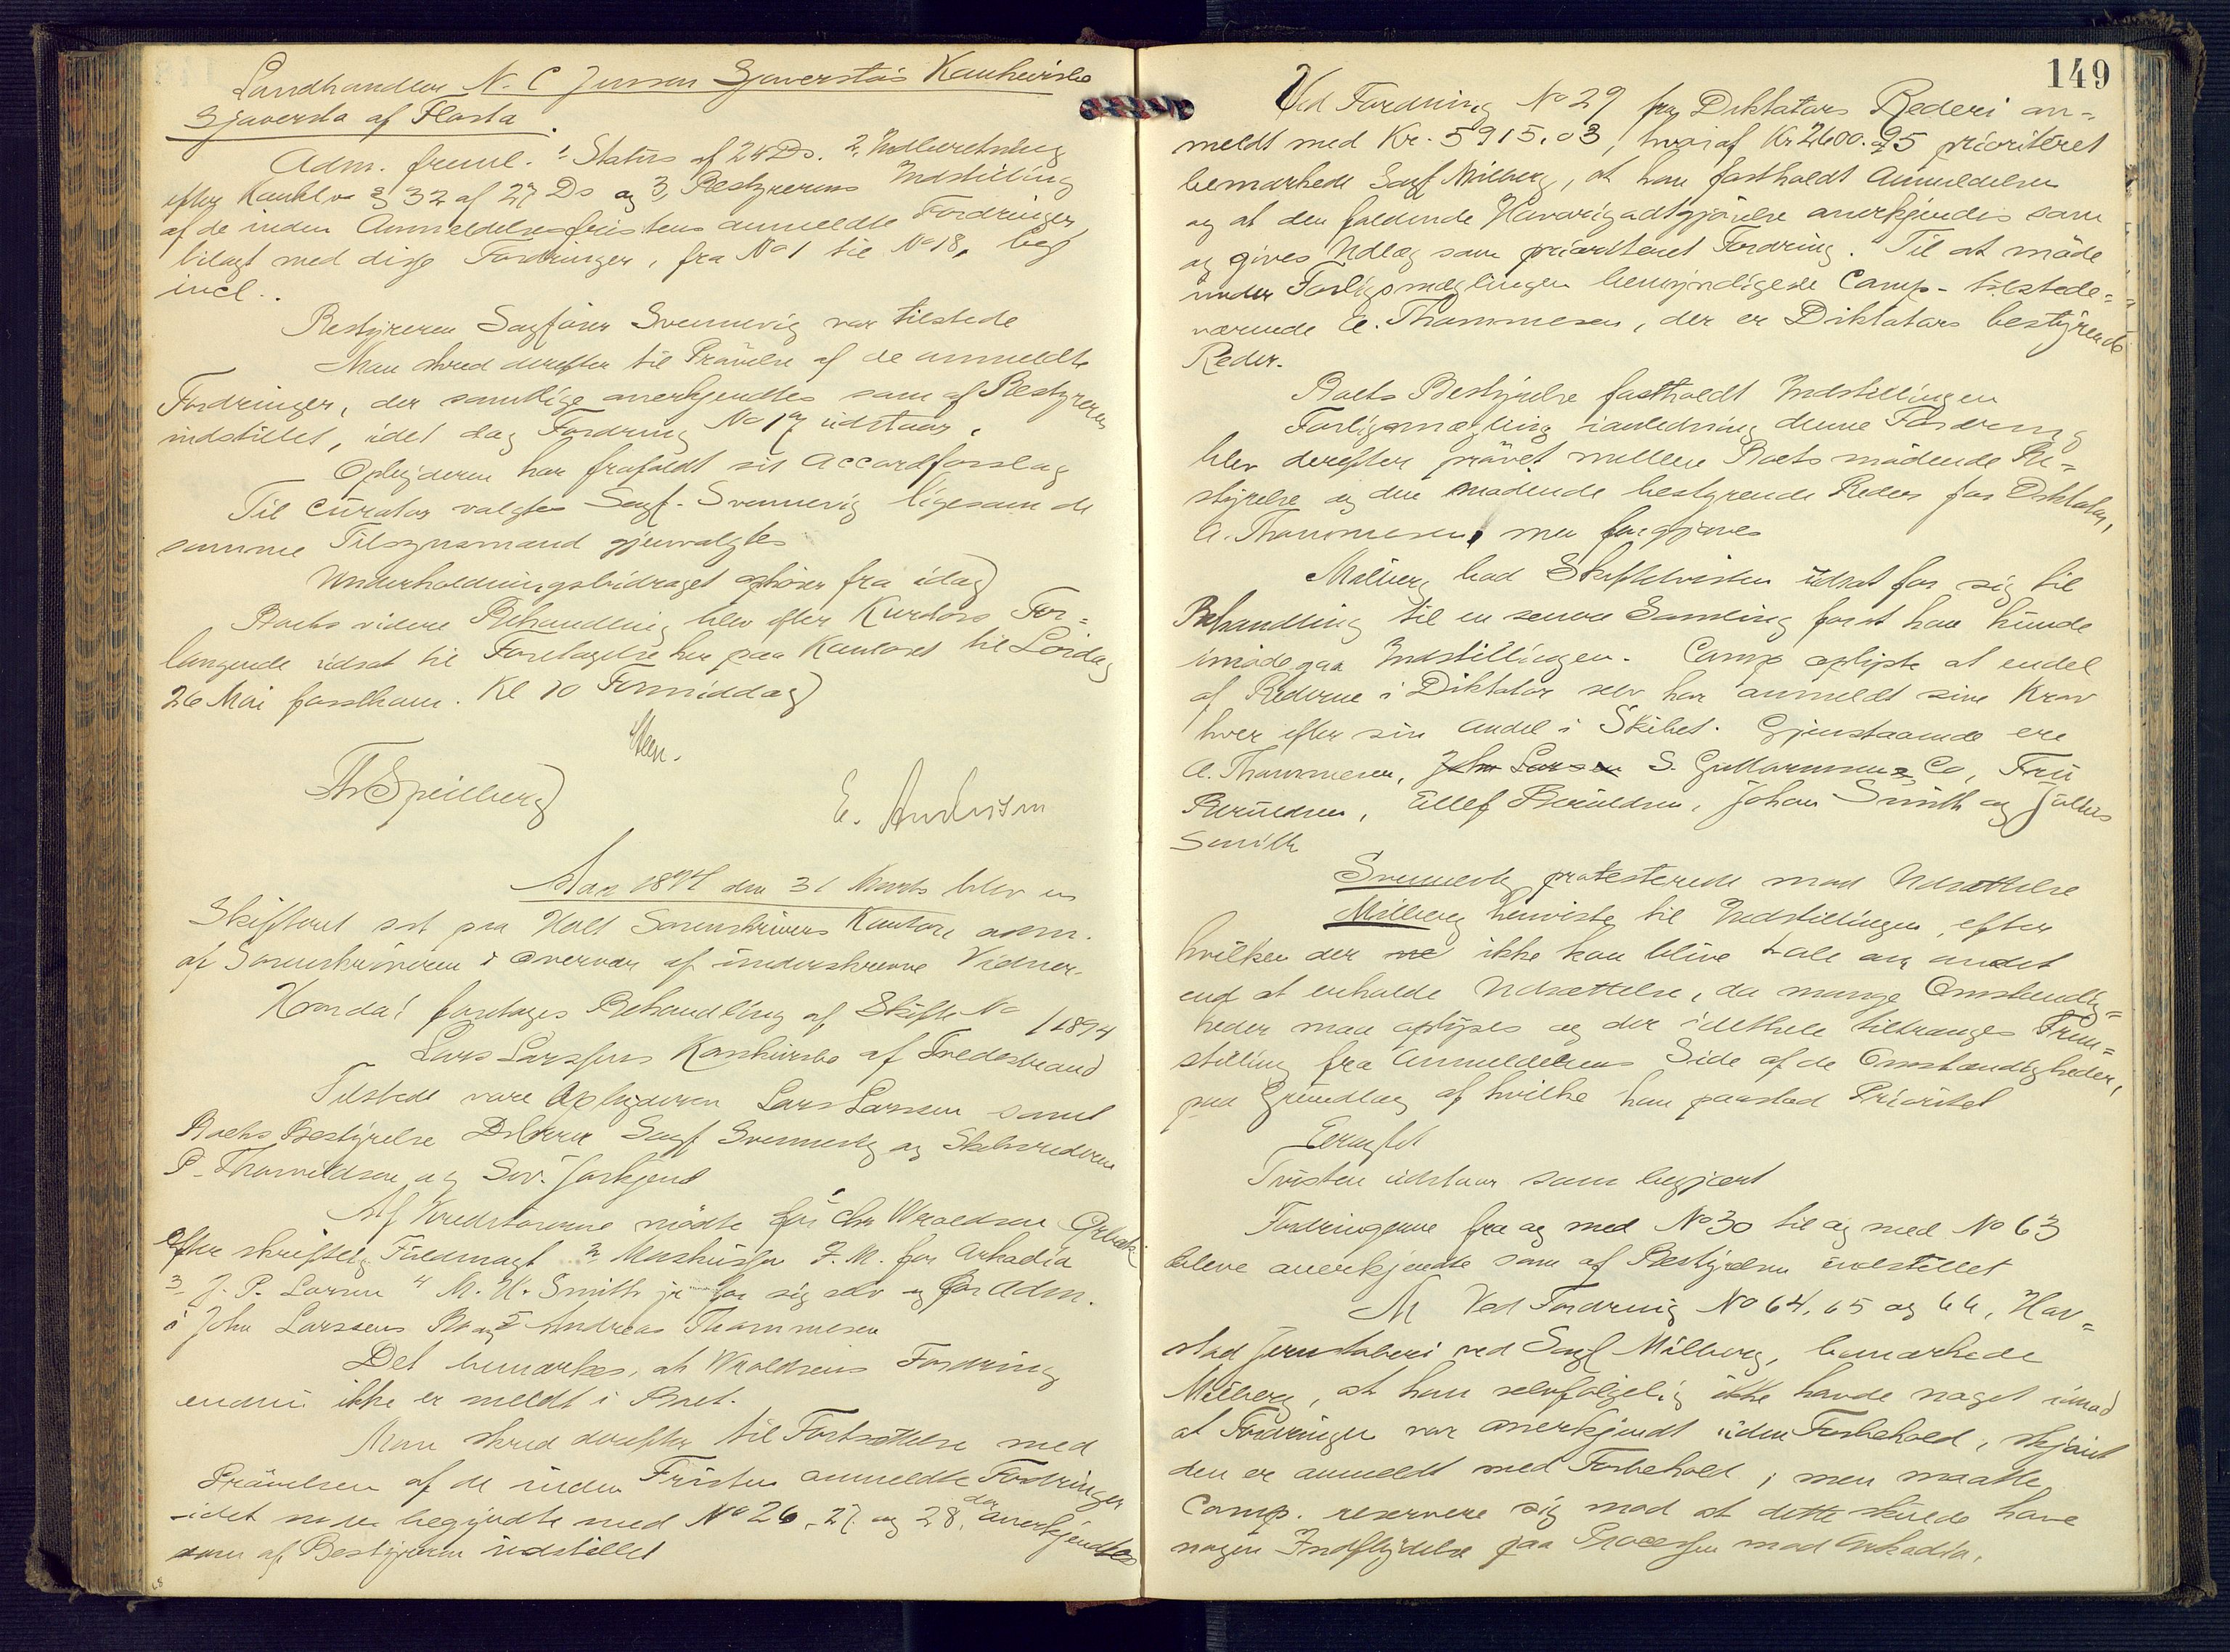 Landhandler N. C Jensen Gjeverstøs Konkursbo
Gjeversta af Flosta.
Adm. freml. 1, Status af 24 Ds. 2, Indberetning
efter Konkl v § 32 af 27 Ds og 3, Bestyrerens Indstilling
af de inden Anmeldelsesfristens anmeldte Fordringer,
bilagt med disse Fordringer, fra No 1 til No 18, beg
incl..
Bestyreren Sagfører Svennevig var tilstede
Man skred derefter til Prøvelse af de anmeldte
Fordringer, der samtlige anerkjendtes som af Bestyreren
indstillet, idet dog Fordring No 17 udstaar.
Opbyderen har frafaldt sit Accordforslag
Til Curator valgtes Sagf. Svennevig ligesom de
samme Tilsynsmænd gjenvalgtes
Underholdningsbidraget ophører fra idag
Boets videre Behandling blev efter Kurators For=
langende udsat til Foretagelse her paa Kontoret til Lørdag
26 Mai førstkom. Kl 10 Formiddag
Steen.
Th Speilberg
E. Andersen
Aar 1894 den 31 Marts blev en
Skifteret sat paa Holt Sorenskrivers Kontor adm.
af Sorenskriveren i Overvær af underskrevne Vidner.
Hvorda! foretoges Behandling af Skifte No / 1894
Lars Larssens Konkursbo af Tvedestrand
Tilstede vare Opbyderen Lars Larssen samt
Boets Bestyrelse DHrrer Sagf Svennevig og Skibsrederne
P. Thorvildsen og Sev. Jorkjend
Af Kreditorerne mødte for Chr Wroldsen
efter skriftlig Fuldmagt 2, F. M. for Arkadia
3, J. P. Larsen 4 M. H. Smith jr for sig selv og for Adm.
i John Larssens Bo og 5 Andreas Thommesen
Det bemærkes, at Wroldsens Fordring
endnu ikke er meldt i Boet.
Man skred derefter til Fortsættelse med
Prøvelsen af de inden Fristen anmeldte Fordringer
idet man begyndte med No 26, 27 og 28, der anerkjendtes
som af Bestyreren indstillet
149
Ved Fordring No 29 fra Diktators Rederi an=
meldt med Kr. 5915.03, hvoraf Kr 2600.95 prioriteret
bemærkede Sagf Milberg, at han fastholdt Anmeldelsen
og at den faldende Havarigodtgjørelse anerkjendes som
og gives Udlæg som prioriteret Fordring. Til at møde
under Forligsmæglingen bemyndigede Comp. tilstede=
værende A. Thommesen, der er Diktators bestyrende
Reder.
Boets Bestyrelse fastholdt Indstillingen
Forligsmægling i anledning denne Fordring
blev derefter prøvet mellem Boets mødende Be=
styrelse og den mødende bestyrende Reder for Diktator,
A. Thommesen, men forgjæves
Milberg bad Skiftetvisten udsat for sig til
Behandling til en senere Samling forat han kunde
imødegaa Indstillingen. Comp oplyste at endel
af Rederne i Diktator selv har anmeldt sine Krav
hver efter sin Andel i Skibet. Gjenstaaende ere
A. Thommesen, John Larsen S. Guttormsen & Co, Fru
Beruldsen, Ellef Beruldsen, Johan Smith og Julius
Smith
Svennevig protesterede mod Udsættelse
Milberg henviste til Indstillingen, efter
hvilken der ikke kan blive tale om andet
end at erholde Udsættelse, da mange Omstændig=
heder maa oplyses og der i detthele tiltrænges Frem=
stilling fra Anmelderens Side af de Omstændigheder,
paa Grundlag af hvilke han paastod Prioritet
Eragtet
Tvisten udstaar som begjært
Fordringerne fra og med No 30 til og med No 63
bleve anerkjendte som af Bestyrelsen indstillet
Ved Fordring No 64, 65 og 66, Hav=
stad Jernstøberi ved Sagf Milberg, bemærkede
Milberg, at han selvfølgelig ikke havde noget imod
at Fordringen var anerkjendt uden Forbehold, skjønt
den er anmeldt med Forbehold, men maatte
Comp. reservere sig mod at dette skulde have
nogen Indflydelse paa Processen mod Arkadia.